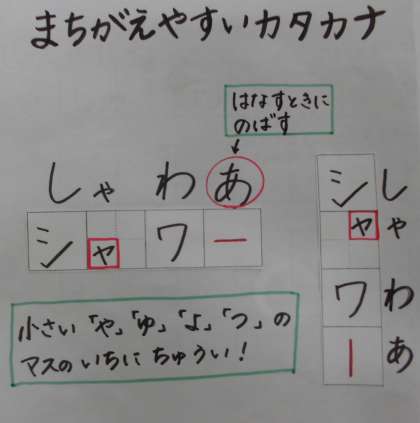 まちがえやすいカタカナ
はなすときに
のばす
しゃわあ
シャワー
小さい「や」「ゆ」「よ」「つ」の
マスのいちにちゅうい!
シャワー
しゃわあ